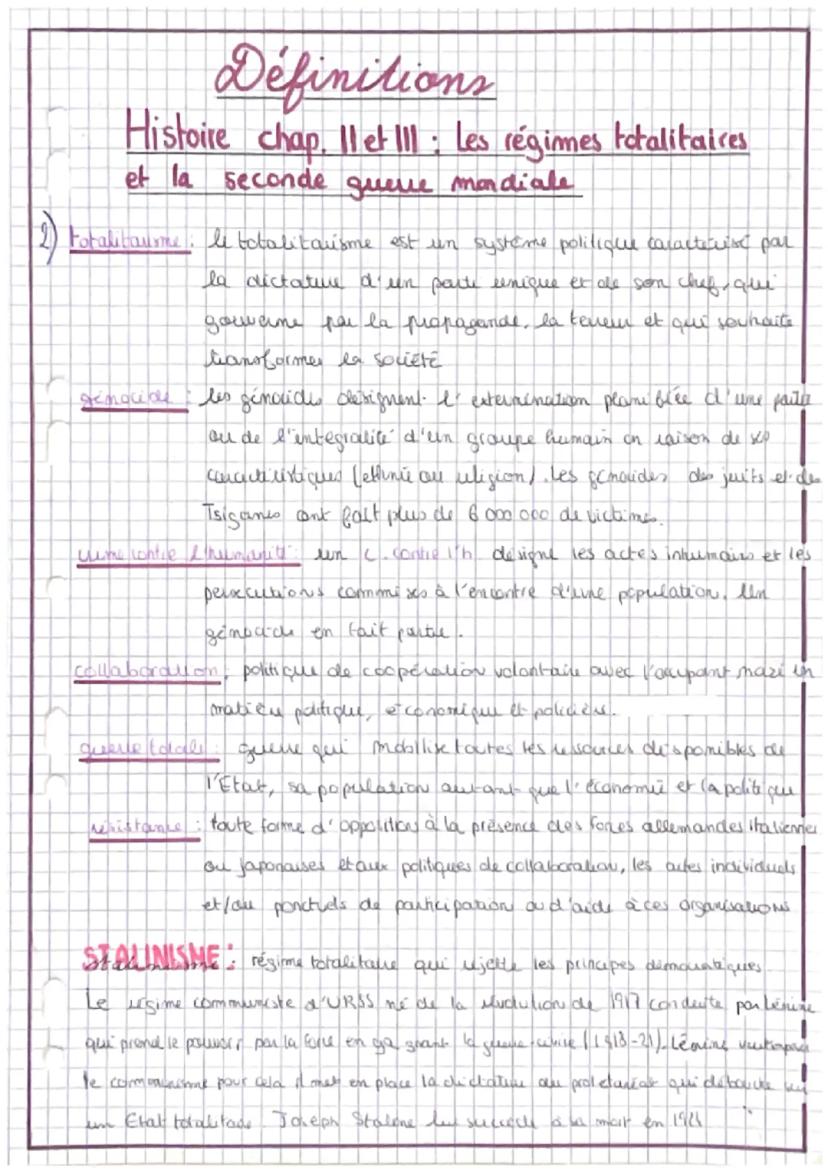 Définitions
Histoire chap. II et III : Les régimes totalitaires
et la seconde guerre mondiale
2) totalitarisme : le totalitarisme est un système politique caractérisé par
la dictature d'un parti unique et de son chef, qui
gouverne par la propagande, la terreur et qui souhaite
transformer la société
génocide : les génocides désignent l'extermination planifiée d'une partie
ou de l'intégralité d'un groupe humain en raison de ses
caractéristiques (ethnie ou religion). Les génocides des juifs et des
Tsiganes ont fait plus de 6 000 000 de victimes.
crime contre l'humanité : un c. contre l'h. désigne les actes inhumains et les
persécutions commises à l'encontre d'une population. Un
génocide en fait partie.
collaboration : politique de coopération volontaire avec l'occupant nazi en
matière politique, économique et policière.
guerre totale : guerre qui mobilise toutes les ressources disponibles de
l'Etat, sa population autant que l'économie et la politique
résistance : toute forme d'opposition à la présence des forces allemandes italiennes
ou japonaises et aux politiques de collaboration, les actes individuels
et/ou ponctuels de participation ou d'aide à ces organisations
STALINISME : régime totalitaire qui rejette les principes démocratiques.
Le régime communiste d'URSS né de la révolution de 1917 conduite par Lénine
qui prend le pouvoir par la force en gagnant la guerre civile (1918-21). Lénine veut
le communisme pour cela il met en place la dictature du prolétariat qui débouche
un Etat totalitaire. Joseph Staline lui succède à sa mort en